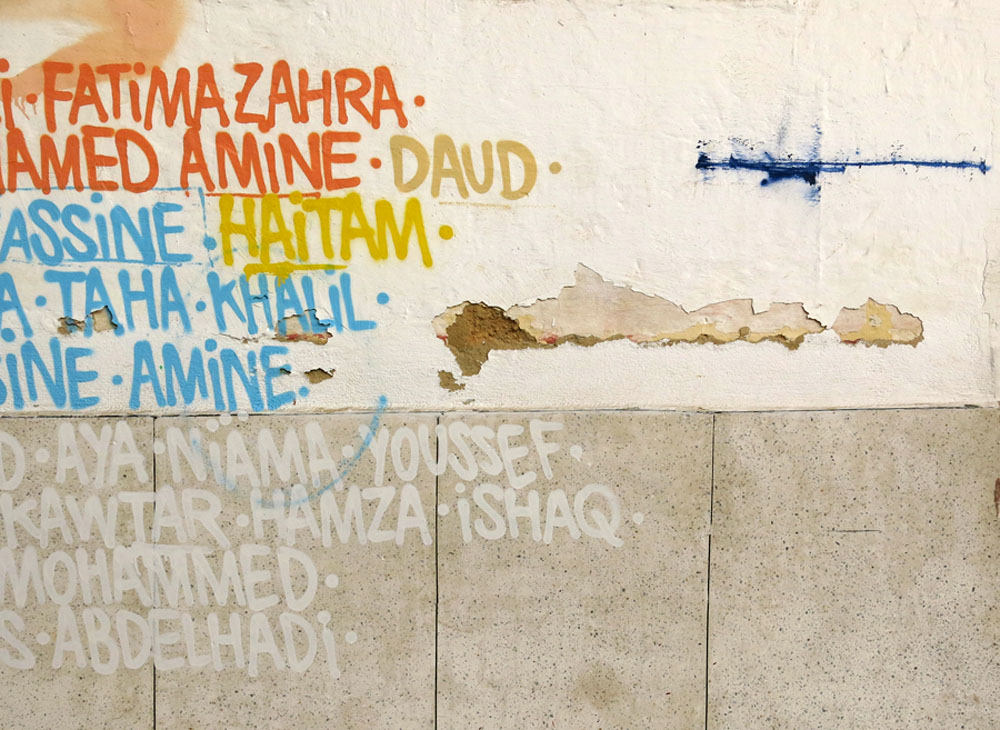 i · FATiMA ZAHRA ·
HAMED AMiNE · DAUD ·
ASSiNE · HAiTAM ·
A · TAHA · KHALiL ·
SiNE · AMiNE ·
D · AYA · NÏAMA · YOUSSEF ·
KAWTAR · HAMZA · iSHAQ ·
MOHAMMED ·
S · ABDELHADi ·